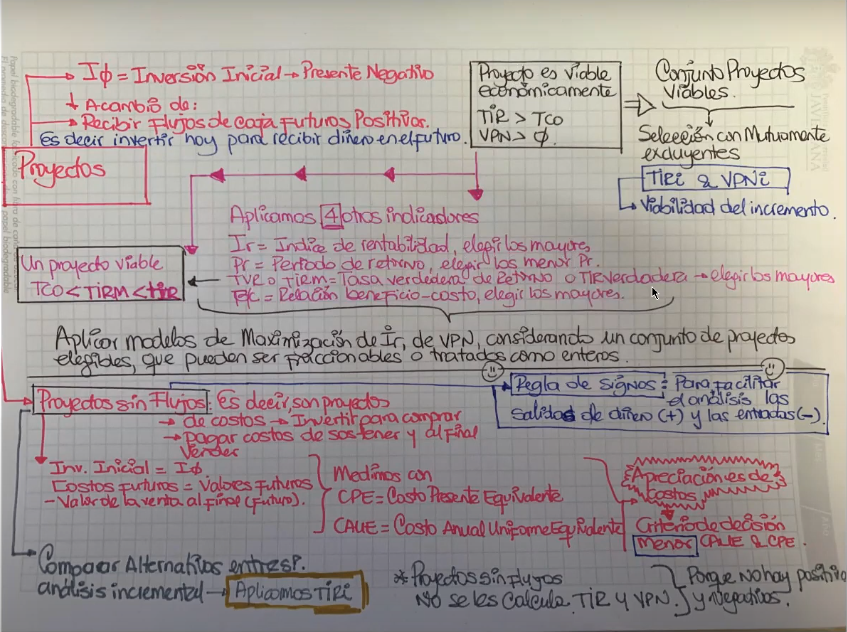 Iϕ = Inversión Inicial → Presente Negativo
↓ A cambio de:
→ Recibir Flujos de caja Futuros Positivos.
Es decir invertir hoy para recibir dinero en el futuro.
Proyectos
Proyecto es viable
económicamente
TIR > TCO
VPN > ϕ.
Conjunto Proyectos
Viables.
Selección con Mutuamente
excluyentes
TIRi & VPNi
Viabilidad del incremento.
Aplicamos 4 otros indicadores
Ir = Indice de rentabilidad, elegir los mayores
Pr = Período de retorno, elegir los menor Pr.
TVR o TIRM = Tasa verdedera de Retorno o TIR verdadera → elegir los mayores
B/C = Relación beneficio-costo, elegir los mayores.
Un proyecto viable
TCO < TIRM < TIR
Aplicar modelos de Maximización de Ir, de VPN, considerando un conjunto de proyectos
elegibles, que pueden ser fraccionables o tratados como enteros.
Proyectos sin Flujos: Es decir, son proyectos
→ de costos → Invertir para comprar
→ pagar costos de sostener y al final
Vender
Regla de signos: Para facilitar
el análisis las
salidas de dinero (+) y las entradas (-).
Inv. Inicial = Iϕ
Costos futuros = Valores futuros
- Valor de la venta al final (futuro).
Medimos con
CPE = Costo Presente Equivalente
CAUE = Costo Anual Uniforme Equivalente
Apreciación es de
Costos
Criterio de decisión
Menor CAUE & CPE.
Comparar Alternativas entre sí.
análisis incremental → Aplicamos TIRi
* Proyectos sin Flujos
No se les calcula TIR y VPN.
Porque No hay positivo
y negativos.